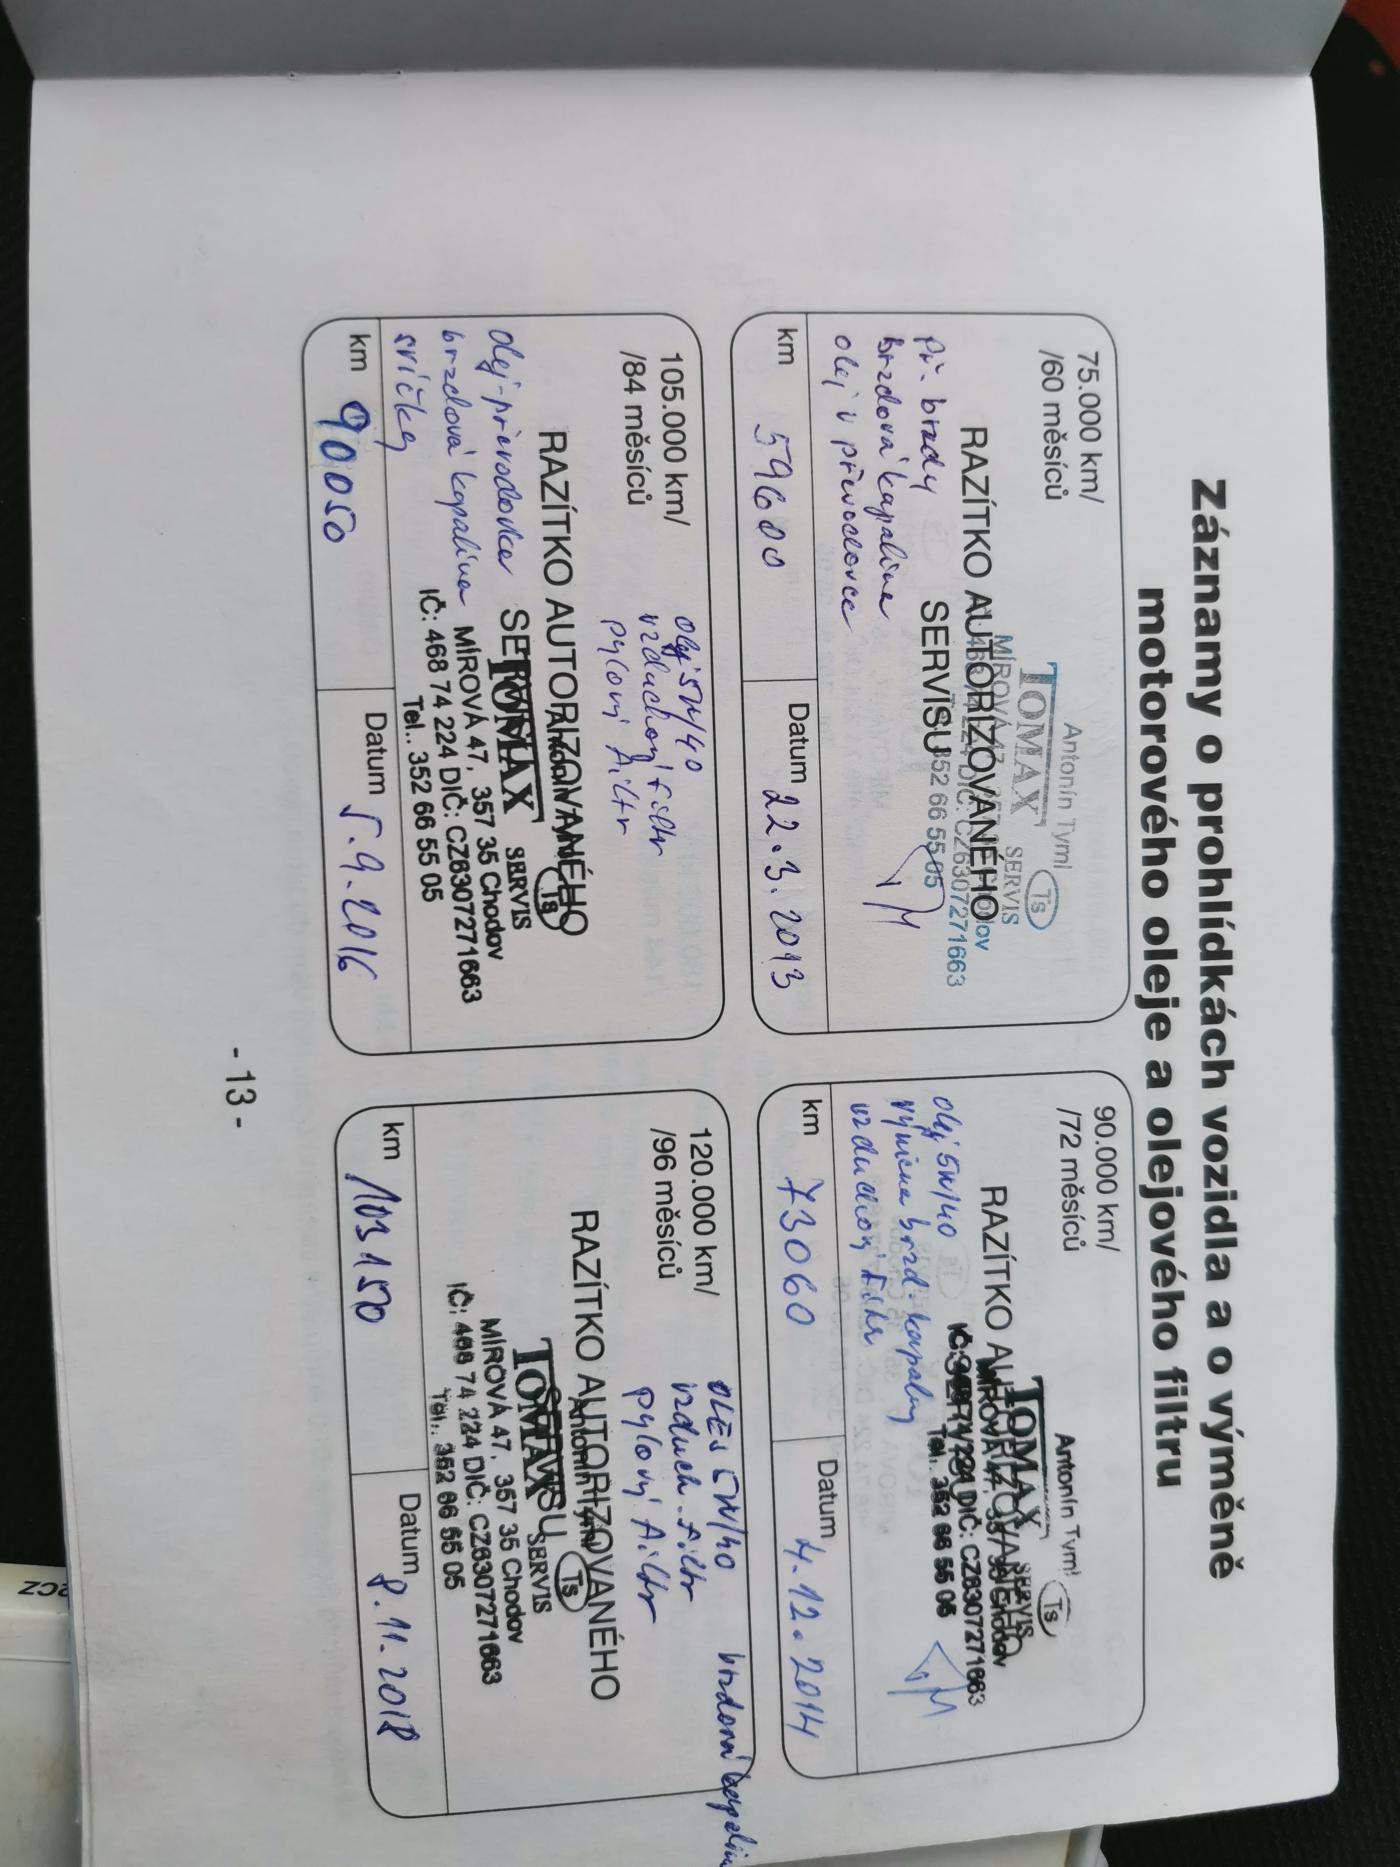 Záznamy o prohlídkách vozidla a o výměně
motorového oleje a olejového filtru
75.000 km/
/60 měsíců
Antonín Tyml Ts
TOMAX SERVIS
RAZÍTKO AUTORIZOVANÉHO
SERVISU
352 66 55 05
př. brzdy
brzdová kapalina
olej v převodovce
km 59600 Datum 22.3.2013
90.000 km/
/72 měsíců
Antonín Tyml Ts
TOMAX SERVIS
RAZÍTKO AUTORIZOVANÉHO
DIČ: CZ6307271663
Tel.. 352 66 55 05
olej 5W/40
výměna brzd. kapaliny
vzduchový filtr
km 73060 Datum 4.12.2014
105.000 km/
/84 měsíců
olej 5W/40
vzduchový filtr
pylový filtr
RAZÍTKO AUTORIZOVANÉHO
Ts
TOMAX SERVIS
olej-převodovka
brzdová kapalina
svíčky
MÍROVÁ 47, 357 35 Chodov
IČ: 468 74 224 DIČ: CZ6307271663
Tel.. 352 66 55 05
km 90050 Datum 5.9.2016
120.000 km/
/96 měsíců
OLEJ 5W/40
vzduch. filtr
pylový filtr
brzdová
RAZÍTKO AUTORIZOVANÉHO
Antonín Tyml Ts
SERVISU
TOMAX SERVIS
MÍROVÁ 47, 357 35 Chodov
IČ: 468 74 224 DIČ: CZ6307271663
Tel.. 352 66 55 05
km 103150 Datum 8.11.2018
- 13 -
CZ